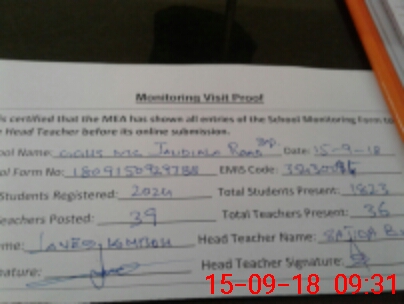 Monitoring Visit Proof
is certified that the MEA has shown all entries of the School Monitoring Form to
Head Teacher before its online submission.
ool Name: Jandiala Road Date: 15-9-18
ol Form No: EMIS Code:
Students Registered: 2024 Total Students Present: 1823
eachers Posted: 39 Total Teachers Present: 36
me: Head Teacher Name:
nature: Head Teacher Signature:
15-09-18 09:31